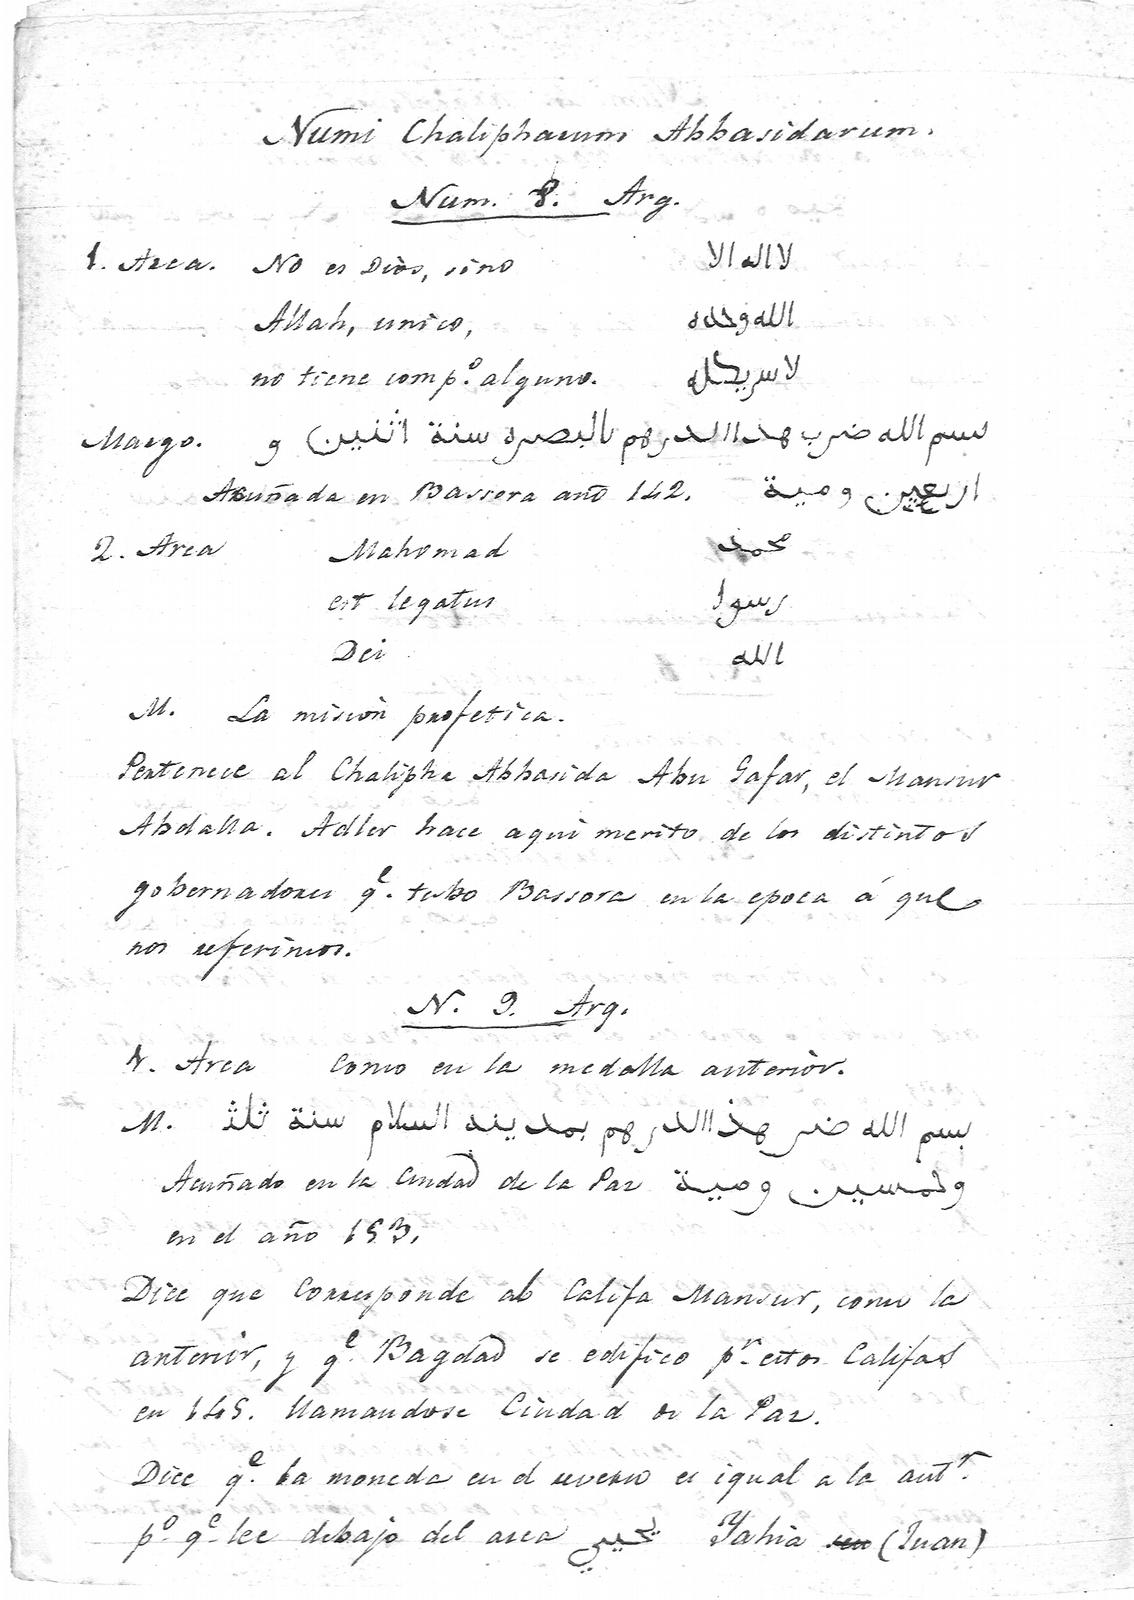 Numi Chaliphaeum Abbasidarum.
Num. 8. Arg.
1. Area. No es Dios, sino لا اله الا
Allah, unico, الله وحده
no tiene comp.º alguno. لا سريك له
Margo. بسم الله ضرب هذا الدرهم بالبصره سنة اثنين و
Acuñada en Bassora año 142. اربعين ومية
2. Area Mahomad محمد
est legatus رسول
Dei الله
M. La mision profetica.
Pertenece al Chalipha Abbasida Abu Gafar, el Mansur
Abdalla. Adler hace aqui merito de los distintos
gobernadores q.e tubo Bassora en la epoca á que
nos referimos.
N. 9. Arg.
1. Area Como en la medalla anterior.
M. بسم الله ضرب هذا الدرهم بمدينه السلام سنة ثلث
Acuñado en la Ciudad de la Paz وخمسين ومية
en el año 153.
Dice que corresponde al Califa Mansur, como la
anterior, y q.e Bagdad se edifico p.r estos Califas
en 145. llamandose Ciudad de la Paz.
Dice q.e la moneda en el reverso es igual a la ant.r
p.º q.e lee debajo del area يحيي Yahia (Juan)